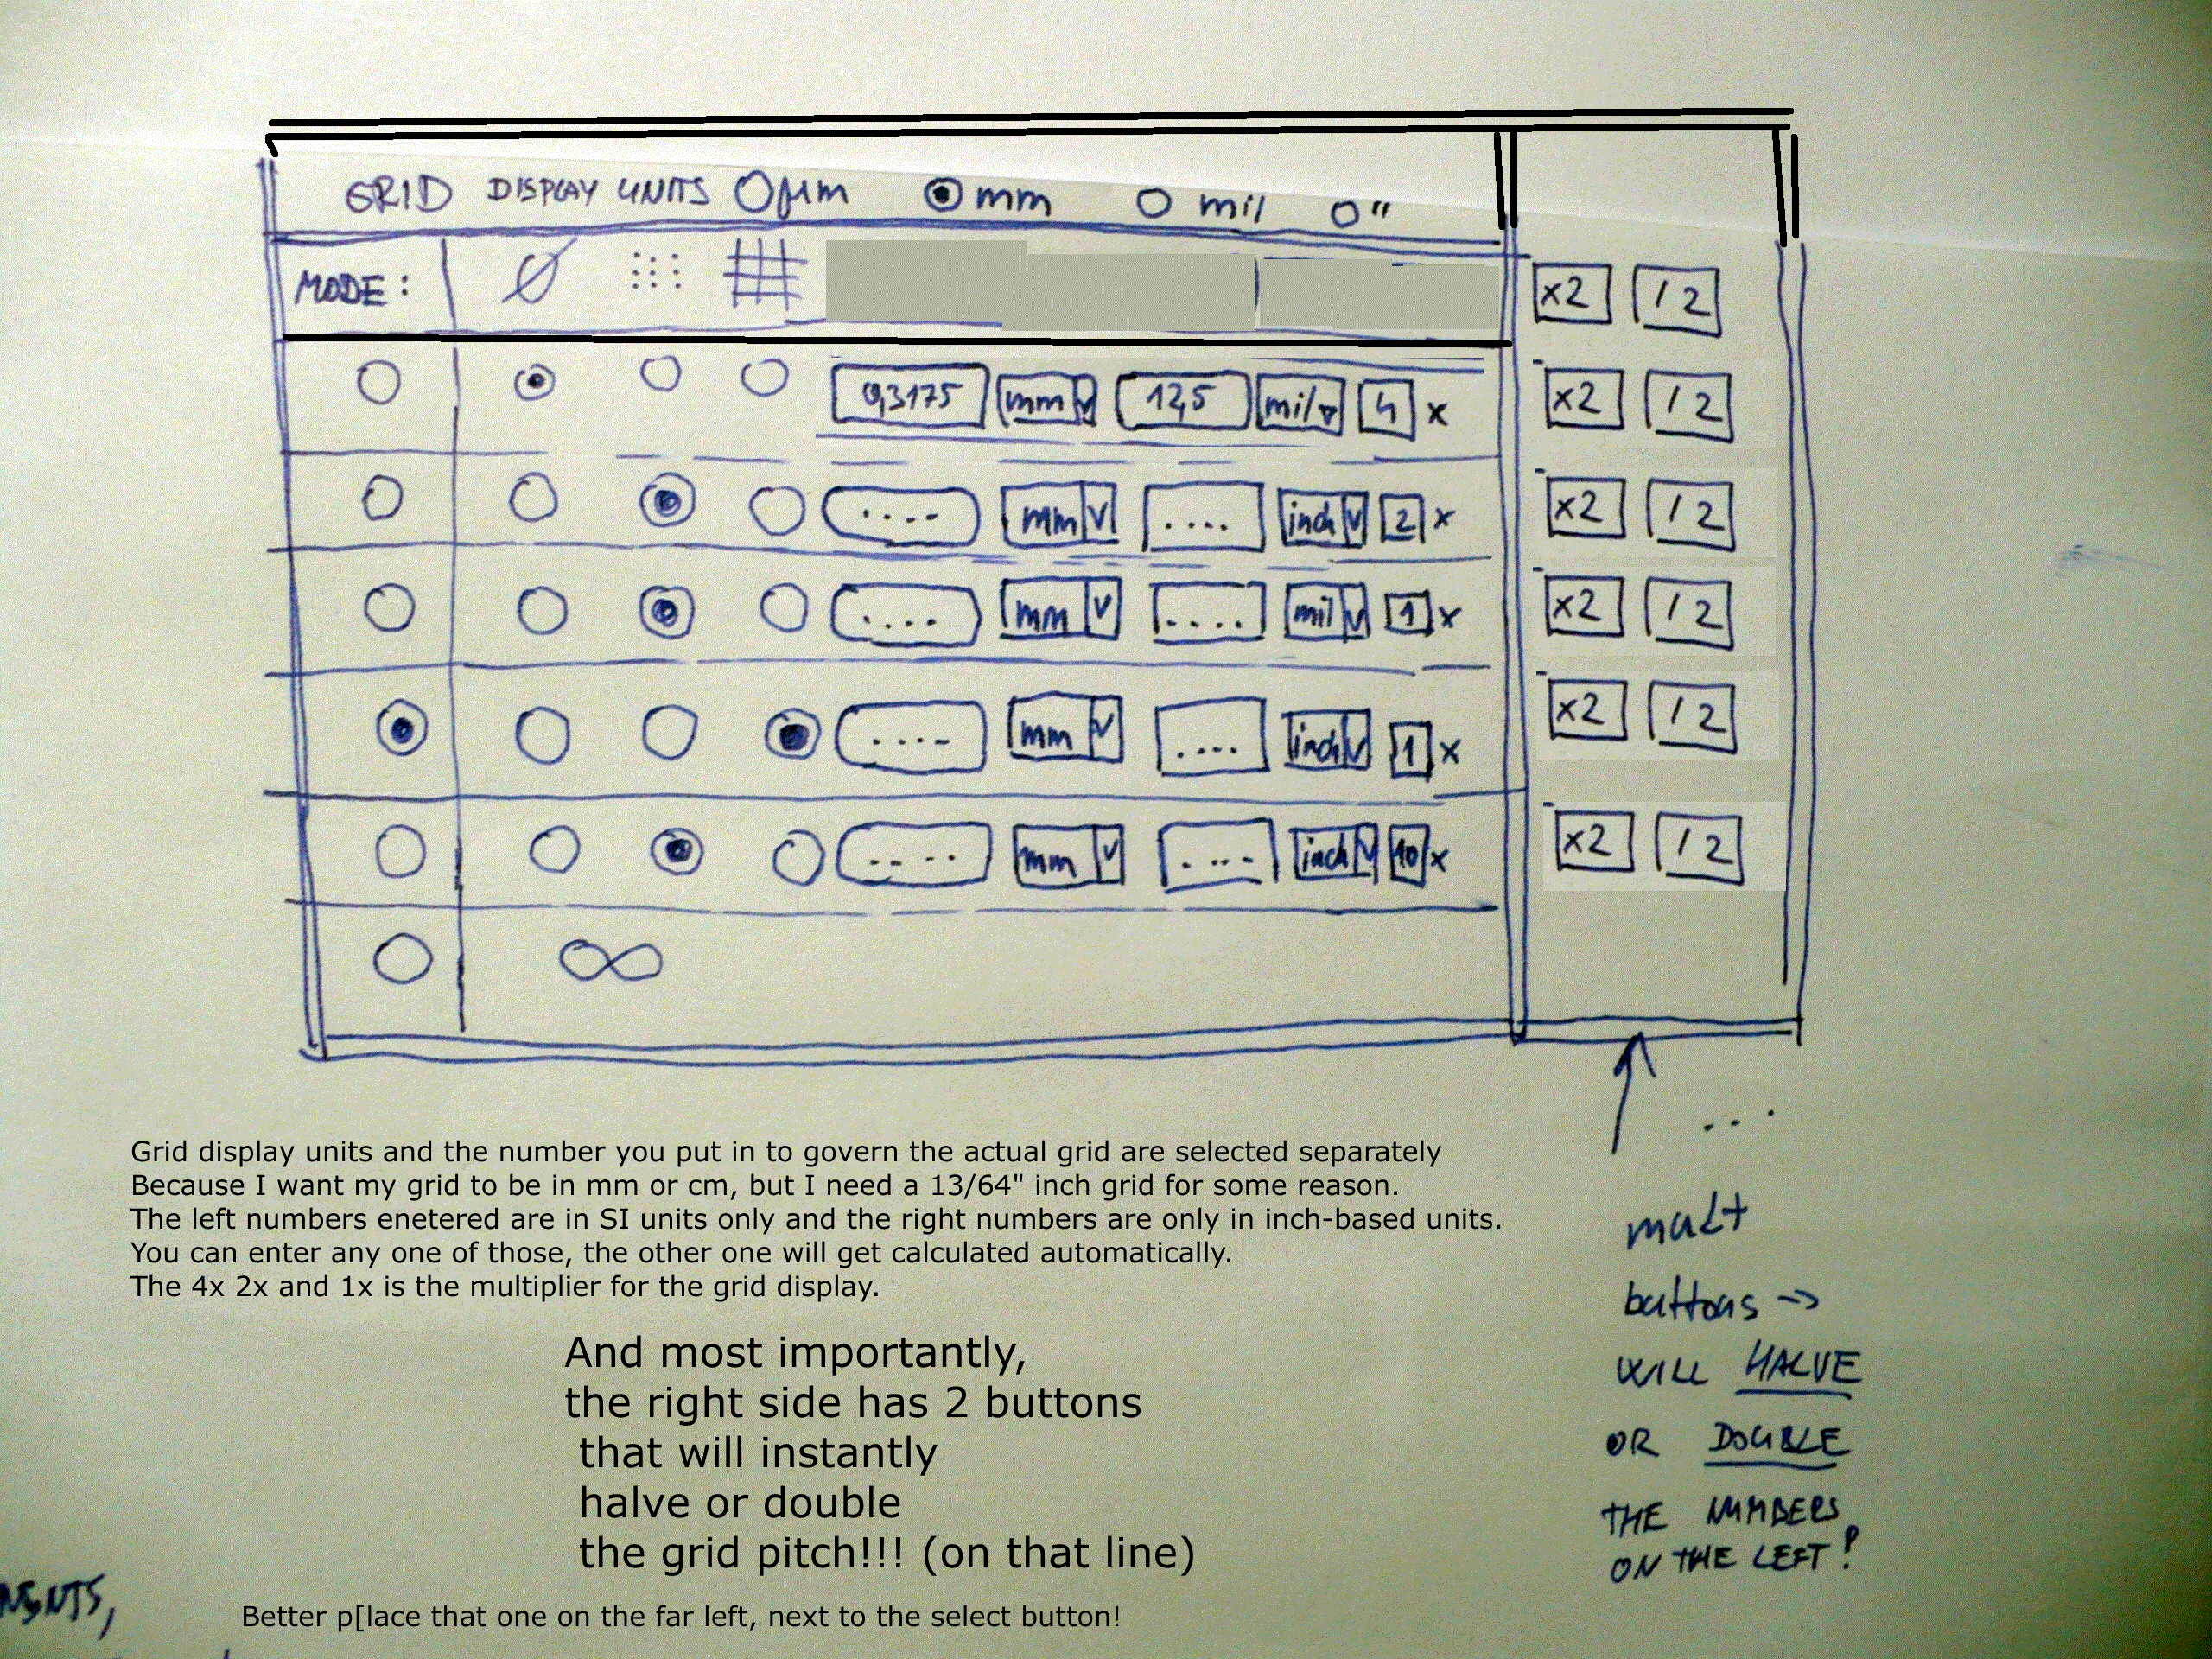 GRID DISPLAY UNITS µm mm mil "
MODE: Ø x2 / 2
0,3175 mm 12,5 mil 4 x x2 / 2
.... mm .... inch 2 x x2 / 2
.... mm .... mil 1 x x2 / 2
.... mm .... inch 1 x x2 / 2
.... mm .... inch 10 x x2 / 2
∞
...
Grid display units and the number you put in to govern the actual grid are selected separately
Because I want my grid to be in mm or cm, but I need a 13/64" inch grid for some reason.
The left numbers enetered are in SI units only and the right numbers are only in inch-based units.
You can enter any one of those, the other one will get calculated automatically.
The 4x 2x and 1x is the multiplier for the grid display.
And most importantly,
the right side has 2 buttons
that will instantly
halve or double
the grid pitch!!! (on that line)
Better p[lace that one on the far left, next to the select button!
mult
buttons ->
WILL HALVE
OR DOUBLE
THE NUMBERS
ON THE LEFT!